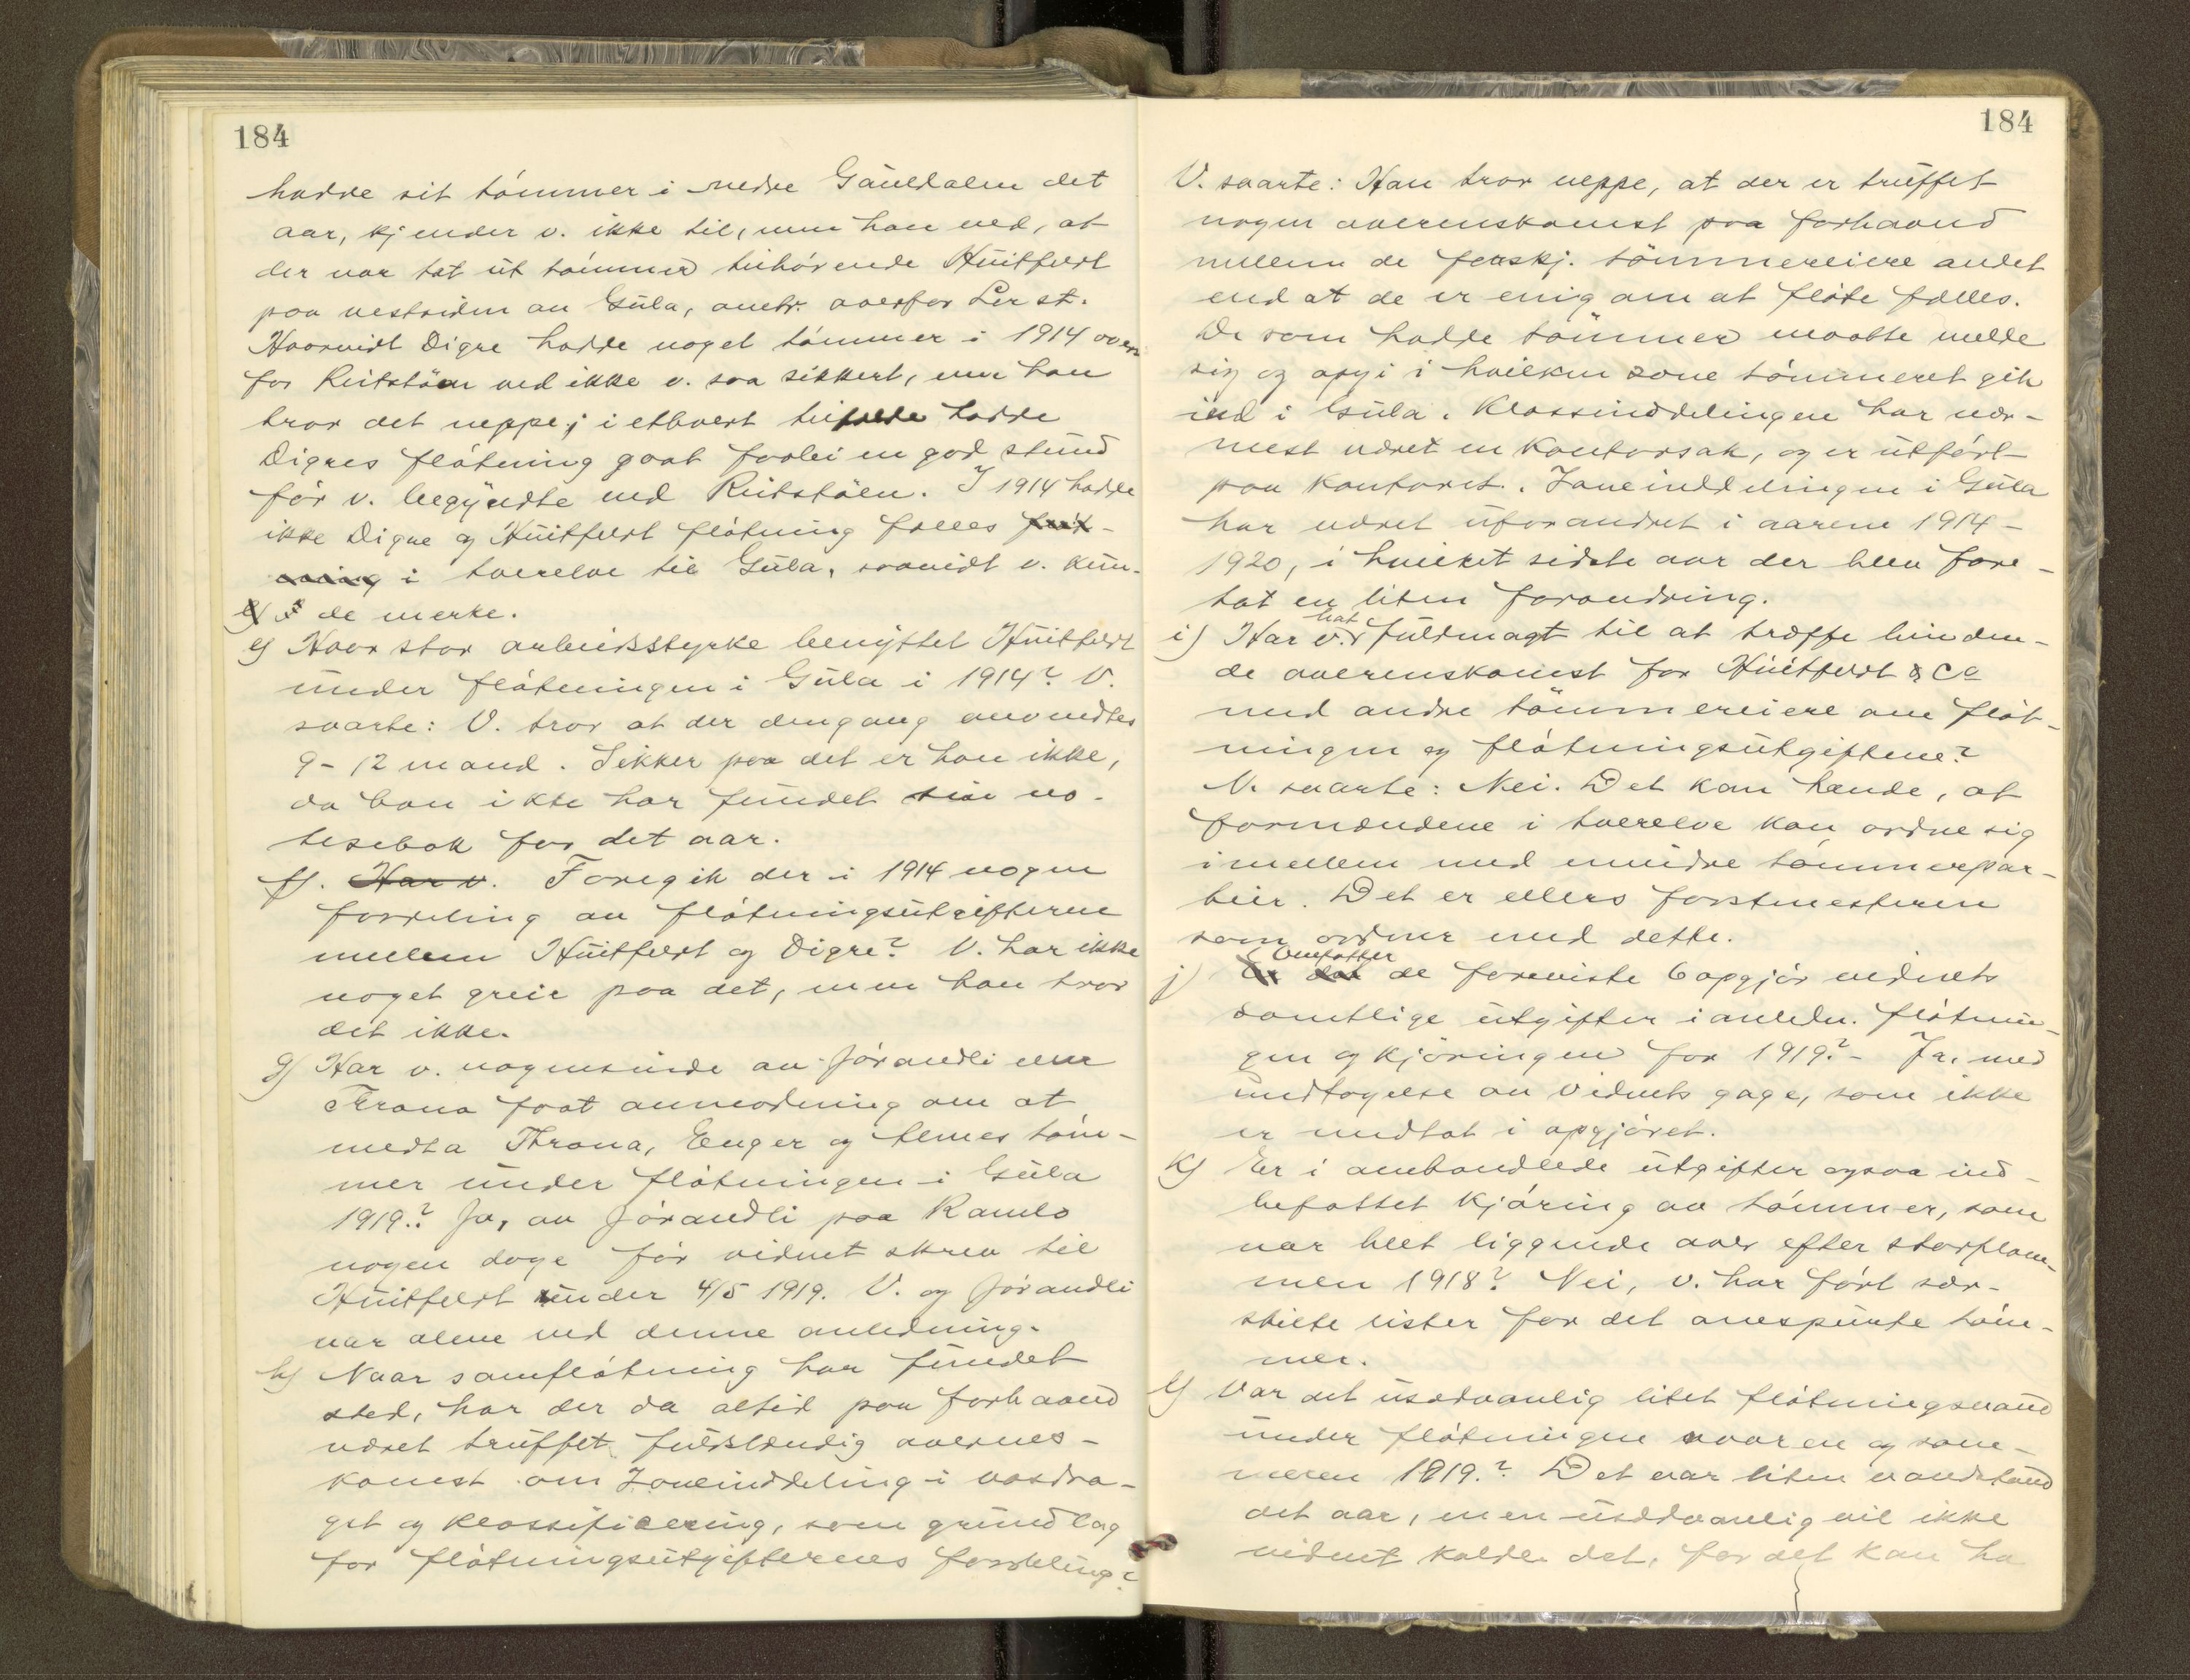 184
hadde sit tömmer i nedre Gauldalen det
aar, kjender v. ikke til, men han ved, at
der var tat ut tömmer tilhörende Huitfeldt
paa vestsiden av Gula, omtr. overfor Ler st.
Hvorvidt Digre hadde noget tömmer i 1914 oven-
for Kritstöen ved ikke v. saa sikkert, men han
tror det neppe; i ethvert tilfælde hadde
Digres flötning gaat forbi en god stund
för v. begyndte ved Ritstöen. I 1914 hadde
ikke Digre og Huitfeldt flötning fælles
i tverelve til Gula, saavidt v. kun-
de merke.
e) Hvor stor arbeidsstyrke benyttet Huitfeldt
under flötningen i Gula i 1914? V.
svarte: V. tror at der dengang anvendtes
9-12 mand. Sikker paa det er han ikke,
da han ikke har fundet sin no-
tisebok for det aar.
f). Har v. Foregik der i 1914 nogen
fordeling av flötningsutgifterne
mellem Huitfeldt og Digre? V. har ikke
noget greie paa det, men han tror
det ikke.
g) Har v. nogensinde av Jörandli eller
Throna faat anmodning om at
medta Throna, Enger og Lemes töm-
mer under flötningen i Gula
1919.? Ja, av Jörandli paa Ramlo
nogen dage för vidnet skrev til
Huitfeldt under 4/5 1919. V. og Jörandli
var alene ved denne anledning.
h) Naar samflötning har fundet
sted, har der da altid paa forhaand
været truffet fuldstændig overens-
komst om Zoneinddeling i vasdra-
get og klassificering, som grundlag
for flötningsutgifternes fordeling?
184
V. svarte: Han tror neppe, at der er truffet
nogen overenskomst paa forhaand
mellem de forskj. tömmereiere andet
end at de er enig om at flöte fælles.
De som hadde tömmer maatte melde
sig og opgi i hvilken zone tömmeret gik
ind i Gula. Klassinddelingen har nær-
mest været en kontorsak, og er utfört
paa kontoret. Zoneinddelingen i Gula
har været uforandret i aarene 1914-
1920, i hvilket sidste aar der blev fore-
tat en liten forandring.
i) Har v. hat fuldmagt til at træffe binden-
de overenskomst for Huitfeldt & Co
med andre tömmereiere om flöt-
ningen og flötningsutgiftene?
V. svarte: Nei. Det kan hænde, at
formændene i tverelve kan ordne sig
imellem med mindre tömmerpar-
tier. Det er ellers forstmesteren
som ordner med dette.
j) Omfatter de foreviste 6 opgjör vidnets
samtlige utgifter i anledn. flötnin-
gen og kjöringen for 1919? - Ja, med
undtagelse av vidnets gage, som ikke
er medtat i opgjöret.
k) Er i omhandlede utgifter ogsaa ind-
befattet kjöring av tömmer, som
var blet liggende over efter storflom-
men 1918? Nei, v. har fört sær-
skilte lister for det omspurte töm-
mer.
l) Var det usedvanlig litet flötningsvand
under flötningen vaaren og som-
meren 1919.? Det var liten vandstand
det aar, men usedvanlig vil ikke
vidnet kalde det, for det kan ha